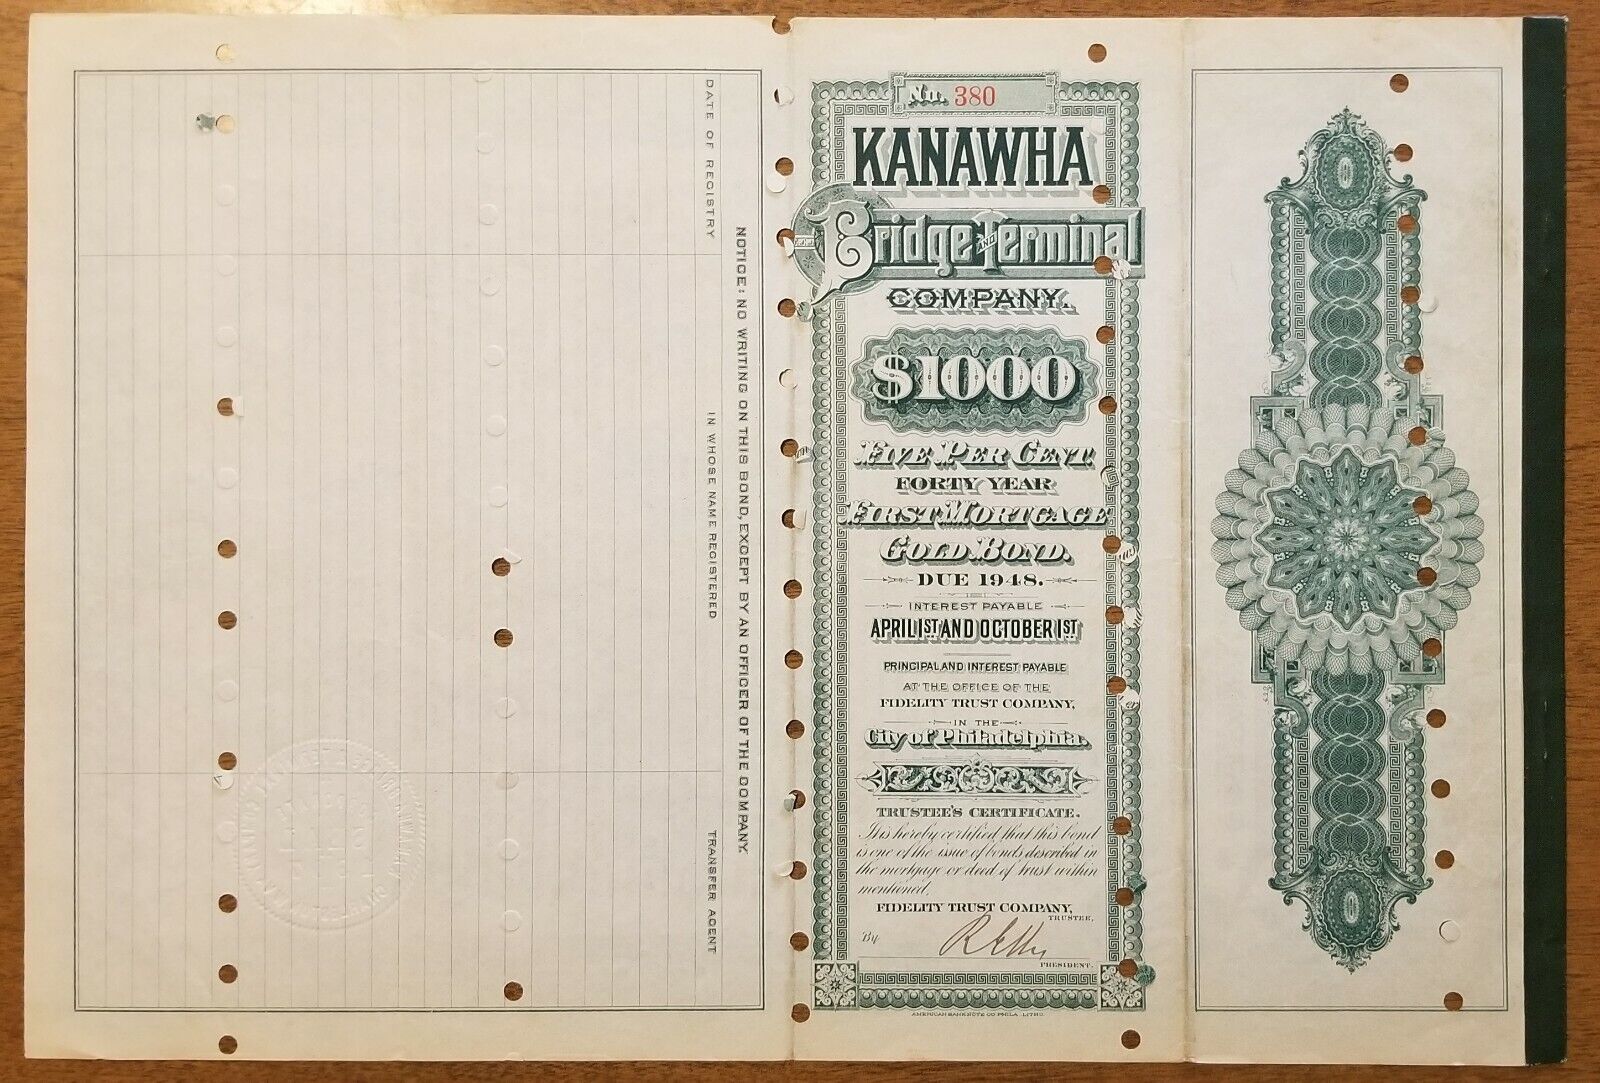 DATE OF REGISTRY
IN WHOSE NAME REGISTERED
TRANSFER AGENT
NOTICE: NO WRITING ON THIS BOND, EXCEPT BY AN OFFICER OF THE COMPANY.
No. 380
KANAWHA
Bridge AND Terminal
COMPANY.
$1000
FIVE PER CENT.
FORTY YEAR
FIRST MORTGAGE
GOLD BOND.
DUE 1948.
INTEREST PAYABLE
APRIL 1ST AND OCTOBER 1ST
PRINCIPAL AND INTEREST PAYABLE
AT THE OFFICE OF THE
FIDELITY TRUST COMPANY,
IN THE
City of Philadelphia.
TRUSTEE'S CERTIFICATE.
It is hereby certified that this bond
is one of the issue of bonds described in
the mortgage or deed of trust within
mentioned.
FIDELITY TRUST COMPANY,
TRUSTEE,
By
PRESIDENT.
AMERICAN BANK NOTE CO PHILA. LITHO.